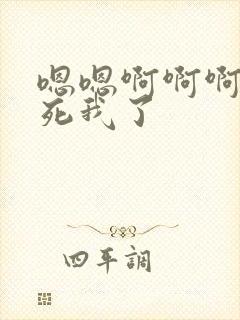 嗯嗯啊啊啊
死我了
四平調